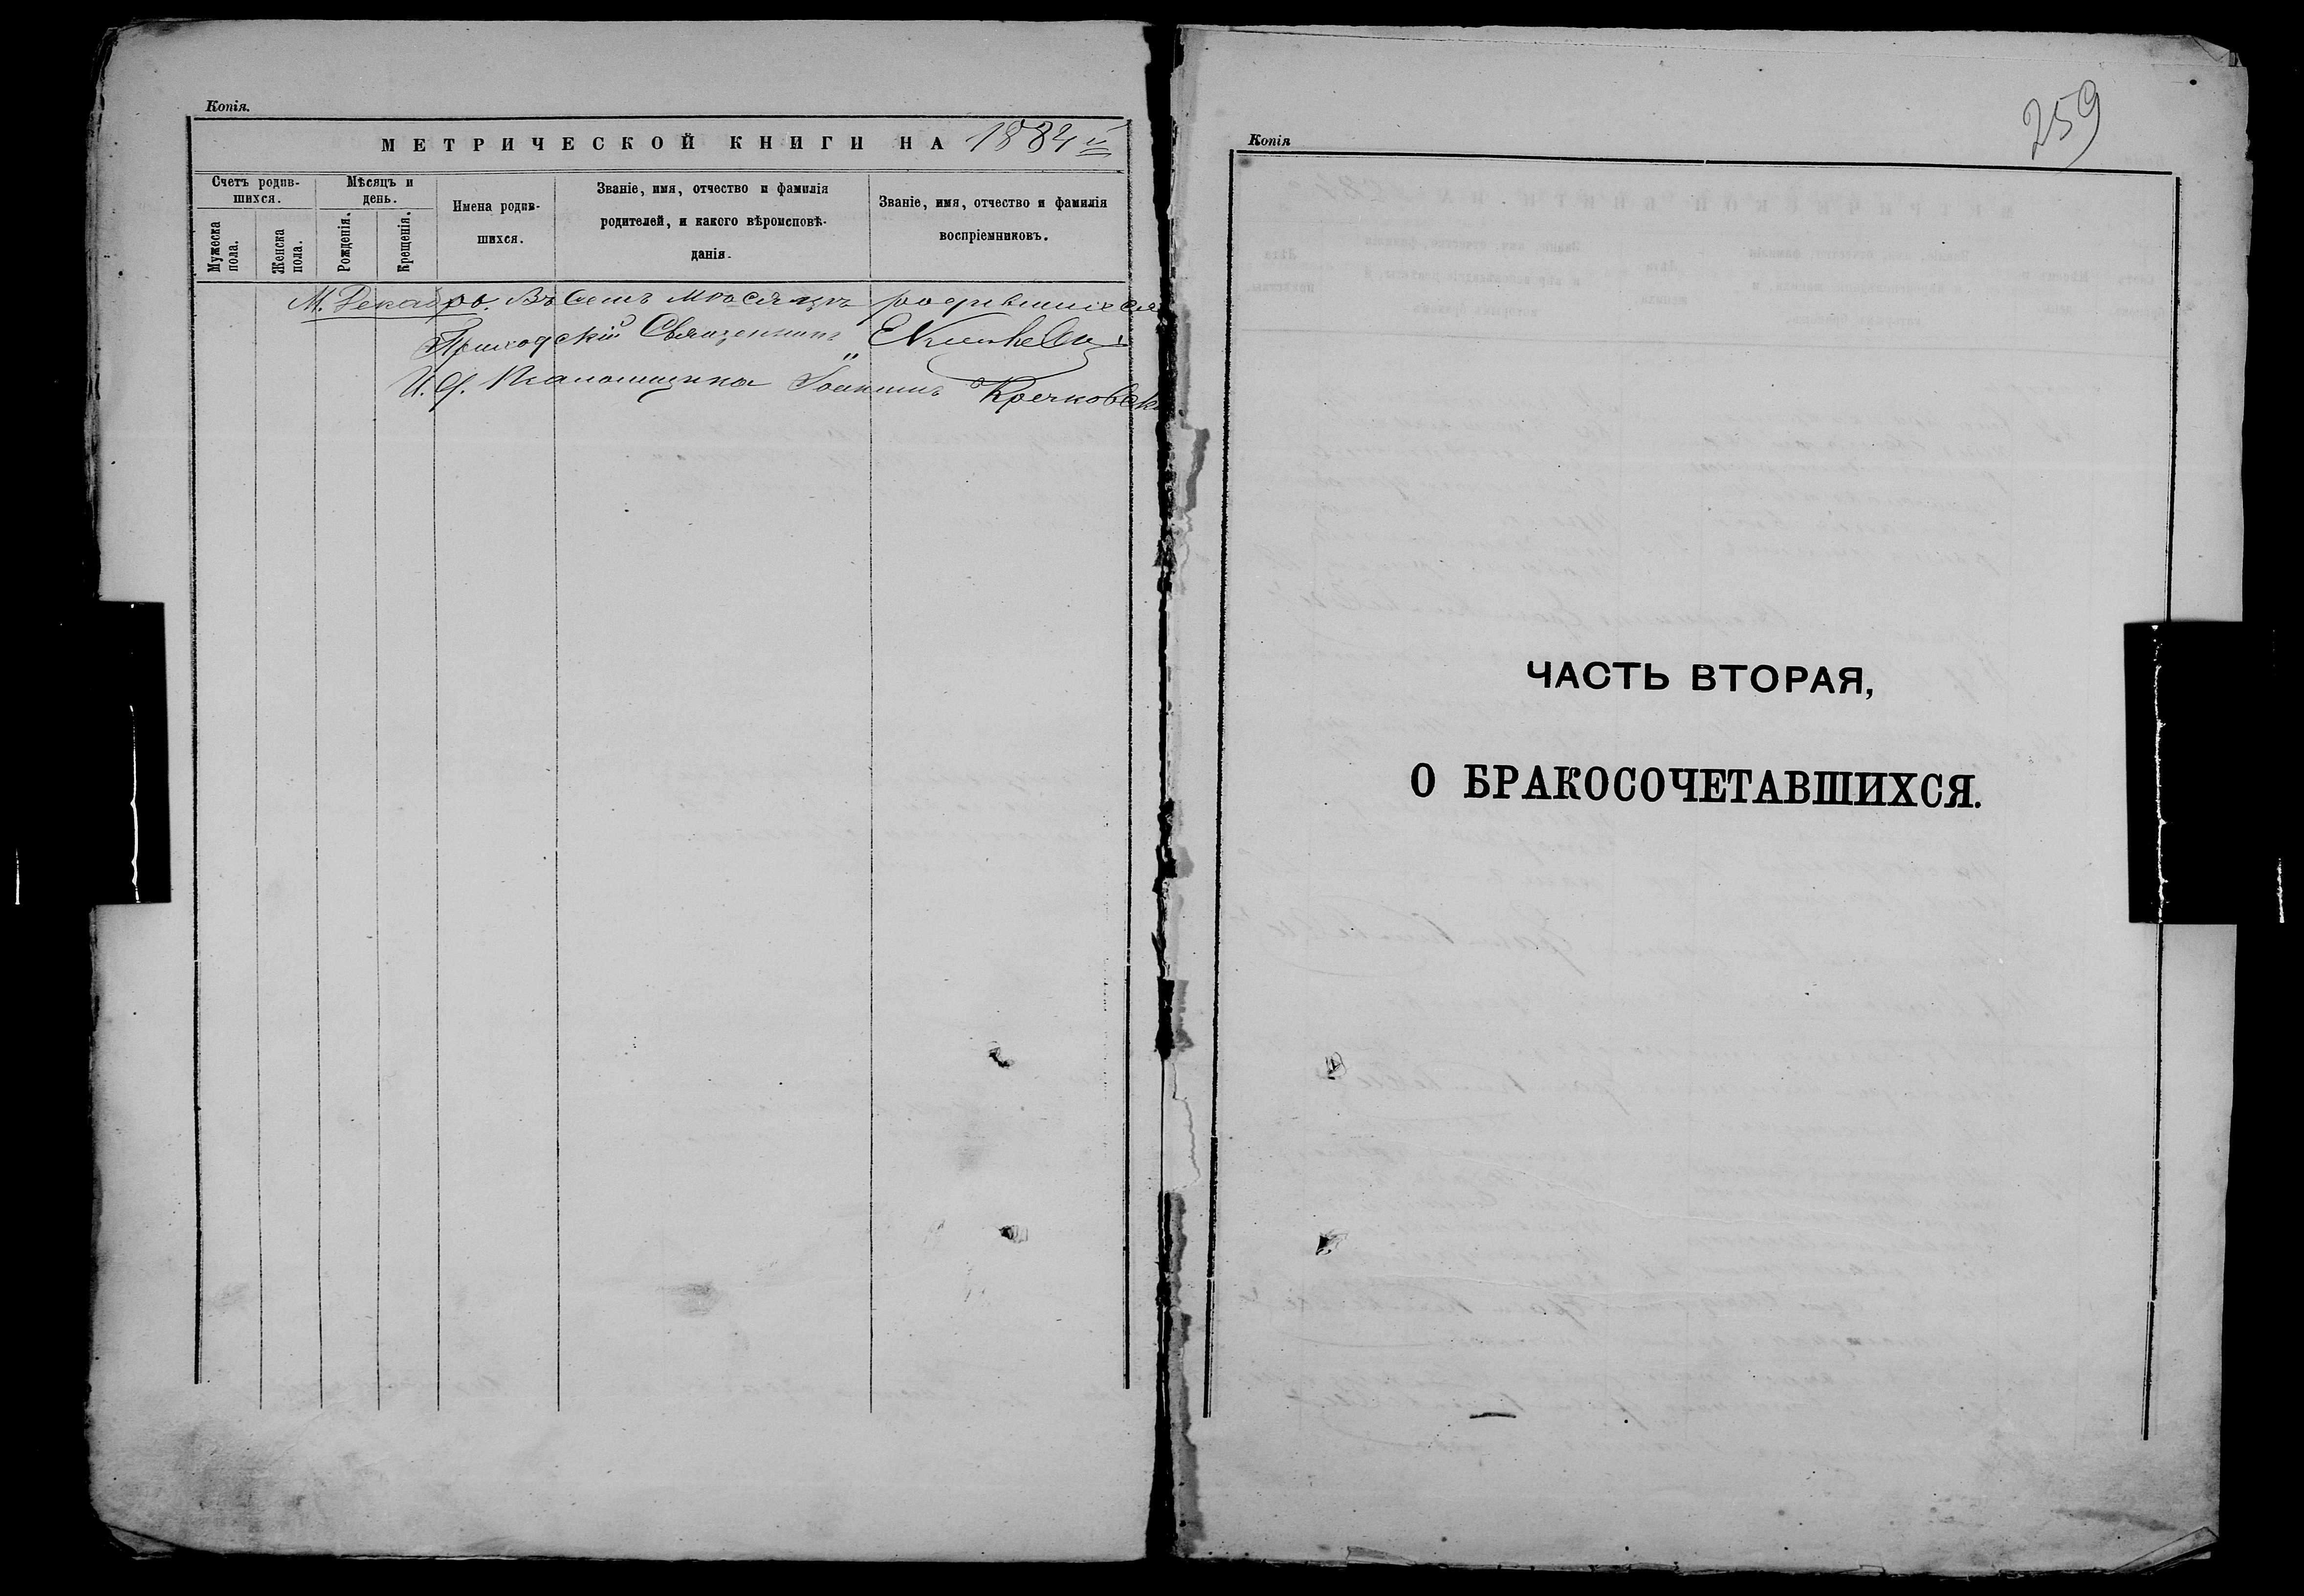 Копія.
МЕТРИЧЕСКОЙ КНИГИ НА 1884й
Счетъ родив-
шихся.
Мужеска
пола.
Женска
пола.
Мѣсяцъ и
день.
Рожденія.
Крещенія.
Имена родив-
шихся.
Званіе, имя, отчество и фамилія
родителей, и какого вѣроисповѣ-
данія.
Званіе, имя, отчество и фамилія
воспріемниковъ.
М. Декабрь. Въ семъ мѣсяцѣ родившихся
Приходскій Священникъ
И. д. Псаломщика Іоакимъ
Копія
259
ЧАСТЬ ВТОРАЯ,
О БРАКОСОЧЕТАВШИХСЯ.